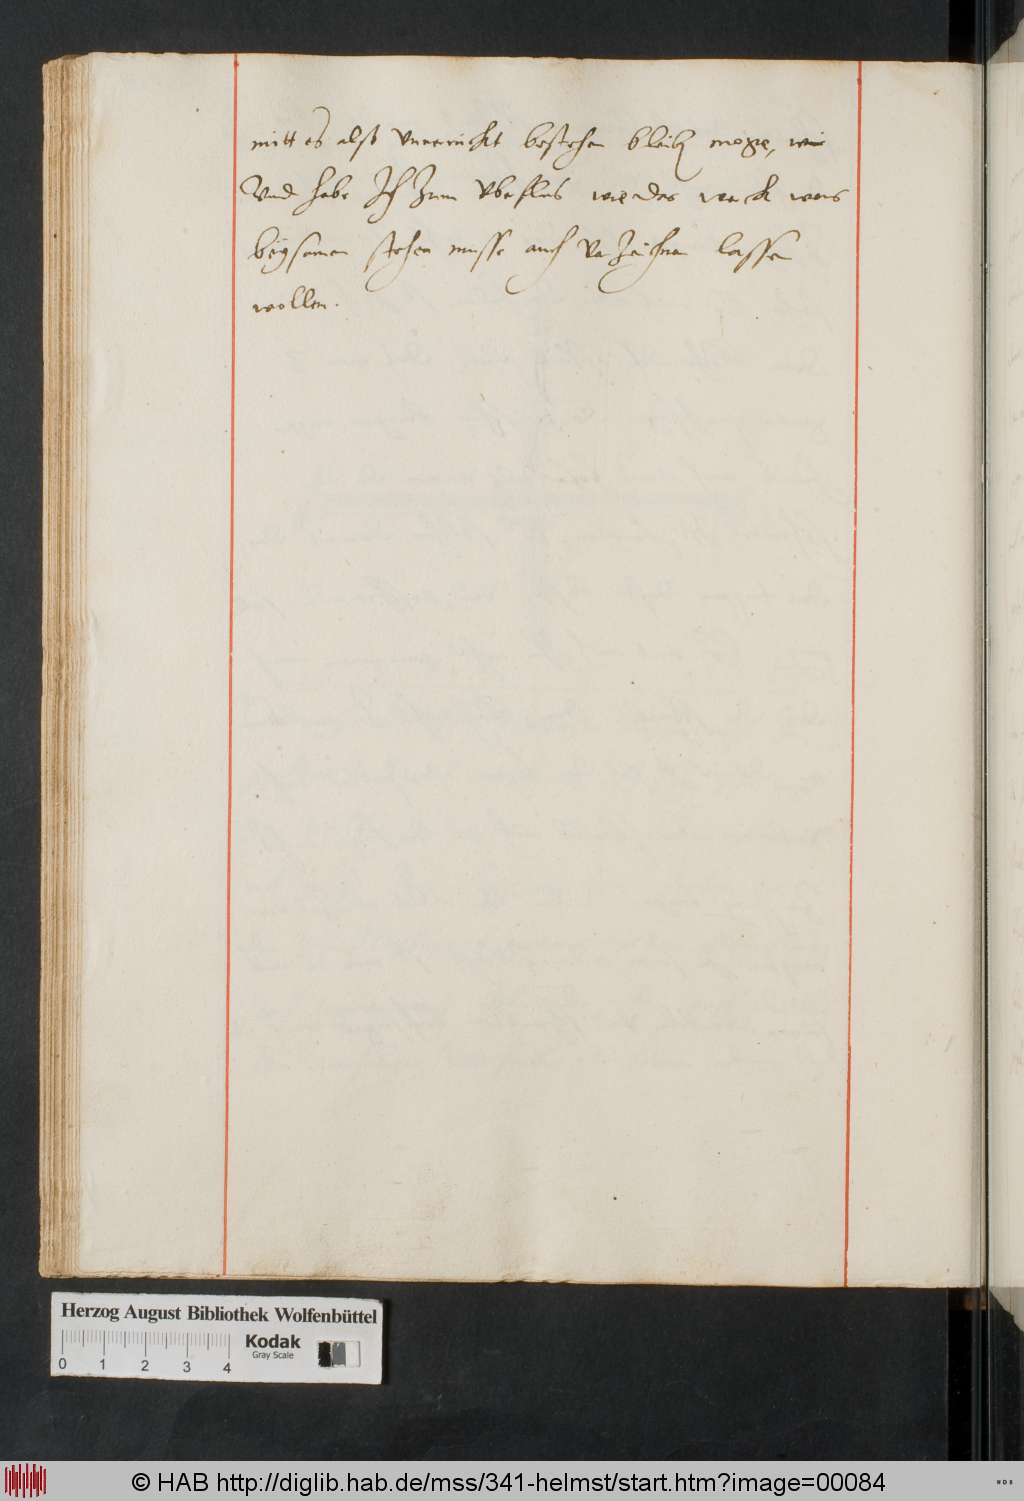 mitt es alß Vnverruckt bestehen bleib mogę,
Vnd habe Ich Zum Vbeflus weder
beysamen stehen musse auch Verzeichnen lassen
wollen.
Herzog August Bibliothek Wolfenbüttel
Kodak
Gray Scale
0 1 2 3 4
© HAB http://diglib.hab.de/mss/341-helmst/start.htm?image=00084